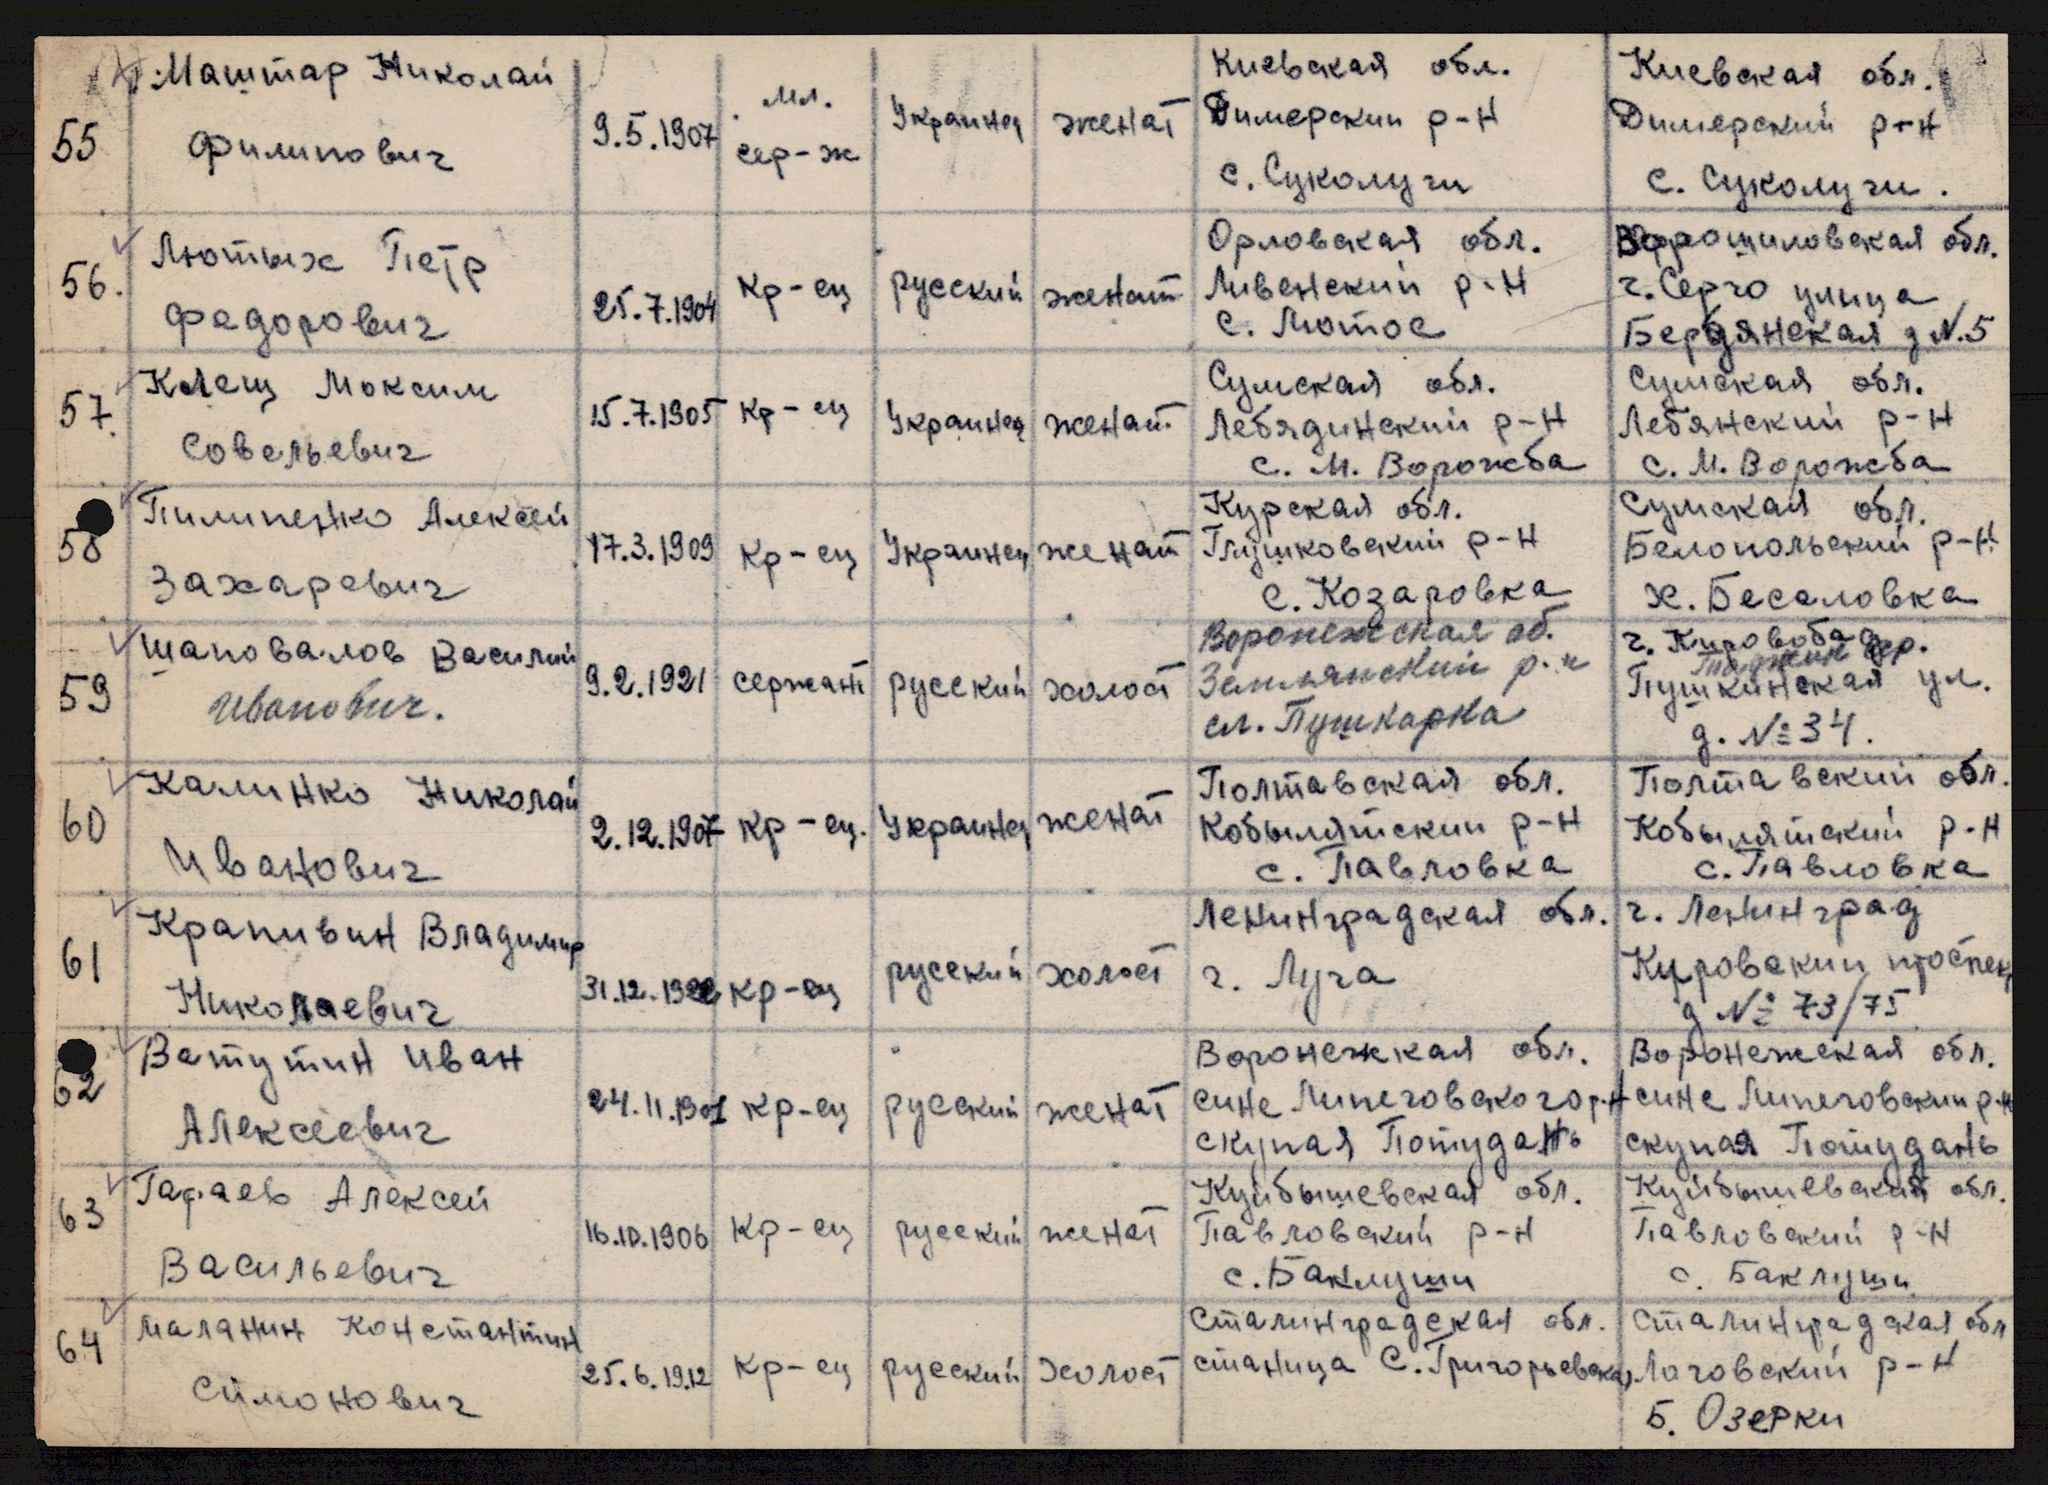 55 Маштар Николай Филипович 9.5.1907 мл. сер-ж Украинец женат Киевская обл. Димерский р-н с. Суколучи Киевская обл. Димерский р-н с. Суколучи.
56. Лютых Петр Федорович 25.7.1904 Кр-ец русский женат Орловская обл. Ливенский р-н с. Лютое Ворошиловская обл. г. Серго улица Бердянская д N.5
57. Клещ Моксим Совельевич 15.7.1905 Кр-ец Украинец женат Сумская обл. Лебядинский р-н с. М. Ворожба Сумская обл. Лебянский р-н с. М. Ворожба
58 Пилипенко Алексей Захаревич 17.3.1909 Кр-ец Украинец женат Курская обл. Глушковский р-н с. Козаровка Сумская обл. Белопольский р-н х. Беселовка
59 Шаповалов Василий Иванович. 9.2.1921 сержант русский холост Воронежская об. Землянский р-н сл. Пушкарка г. Кировобад Таджик Пушкинская ул. д. № 34.
60 Калинко Николай Иванович 2.12.1907 Кр-ец. Украинец женат Полтавская обл. Кобылятский р-н с. Павловка Полтавский обл. Кобылятский р-н с. Павловка
61 Крапивин Владимир Николаевич 31.12.1922 Кр-ец русский холост Ленинградская обл. г. Луга г. Ленинград Куровский проспек д № 73/75
62 Ватутин Иван Алексеевич 24.11.1901 Кр-ец русский женат Воронежкая обл. сине Липеговского р-н скупая Потудань Воронежская обл. сине Липеговский р-н скупая Потудань
63 Гафаев Алексей Васильевич 16.10.1906 Кр-ец русский женат Куйбышевская обл. Павловский р-н с. Баклуши Куйбышевский обл. Павловский р-н с. Баклуши
64 Маланин Константин Симонович 25.6.1912 Кр-ец русский Холост Сталинградская обл. станица С. Григорьевская Сталинградская обл Логовский р-н Б. Озерки